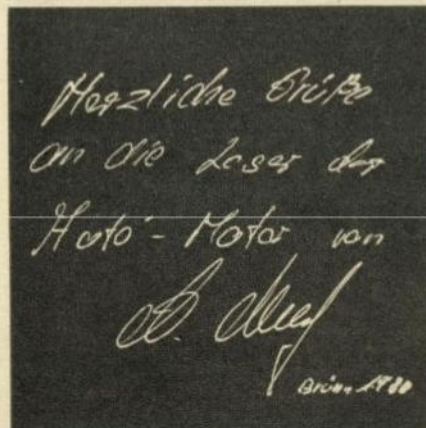 Herzliche Grüße
an die Leser der
Autó-Motor von
Brünn 1980